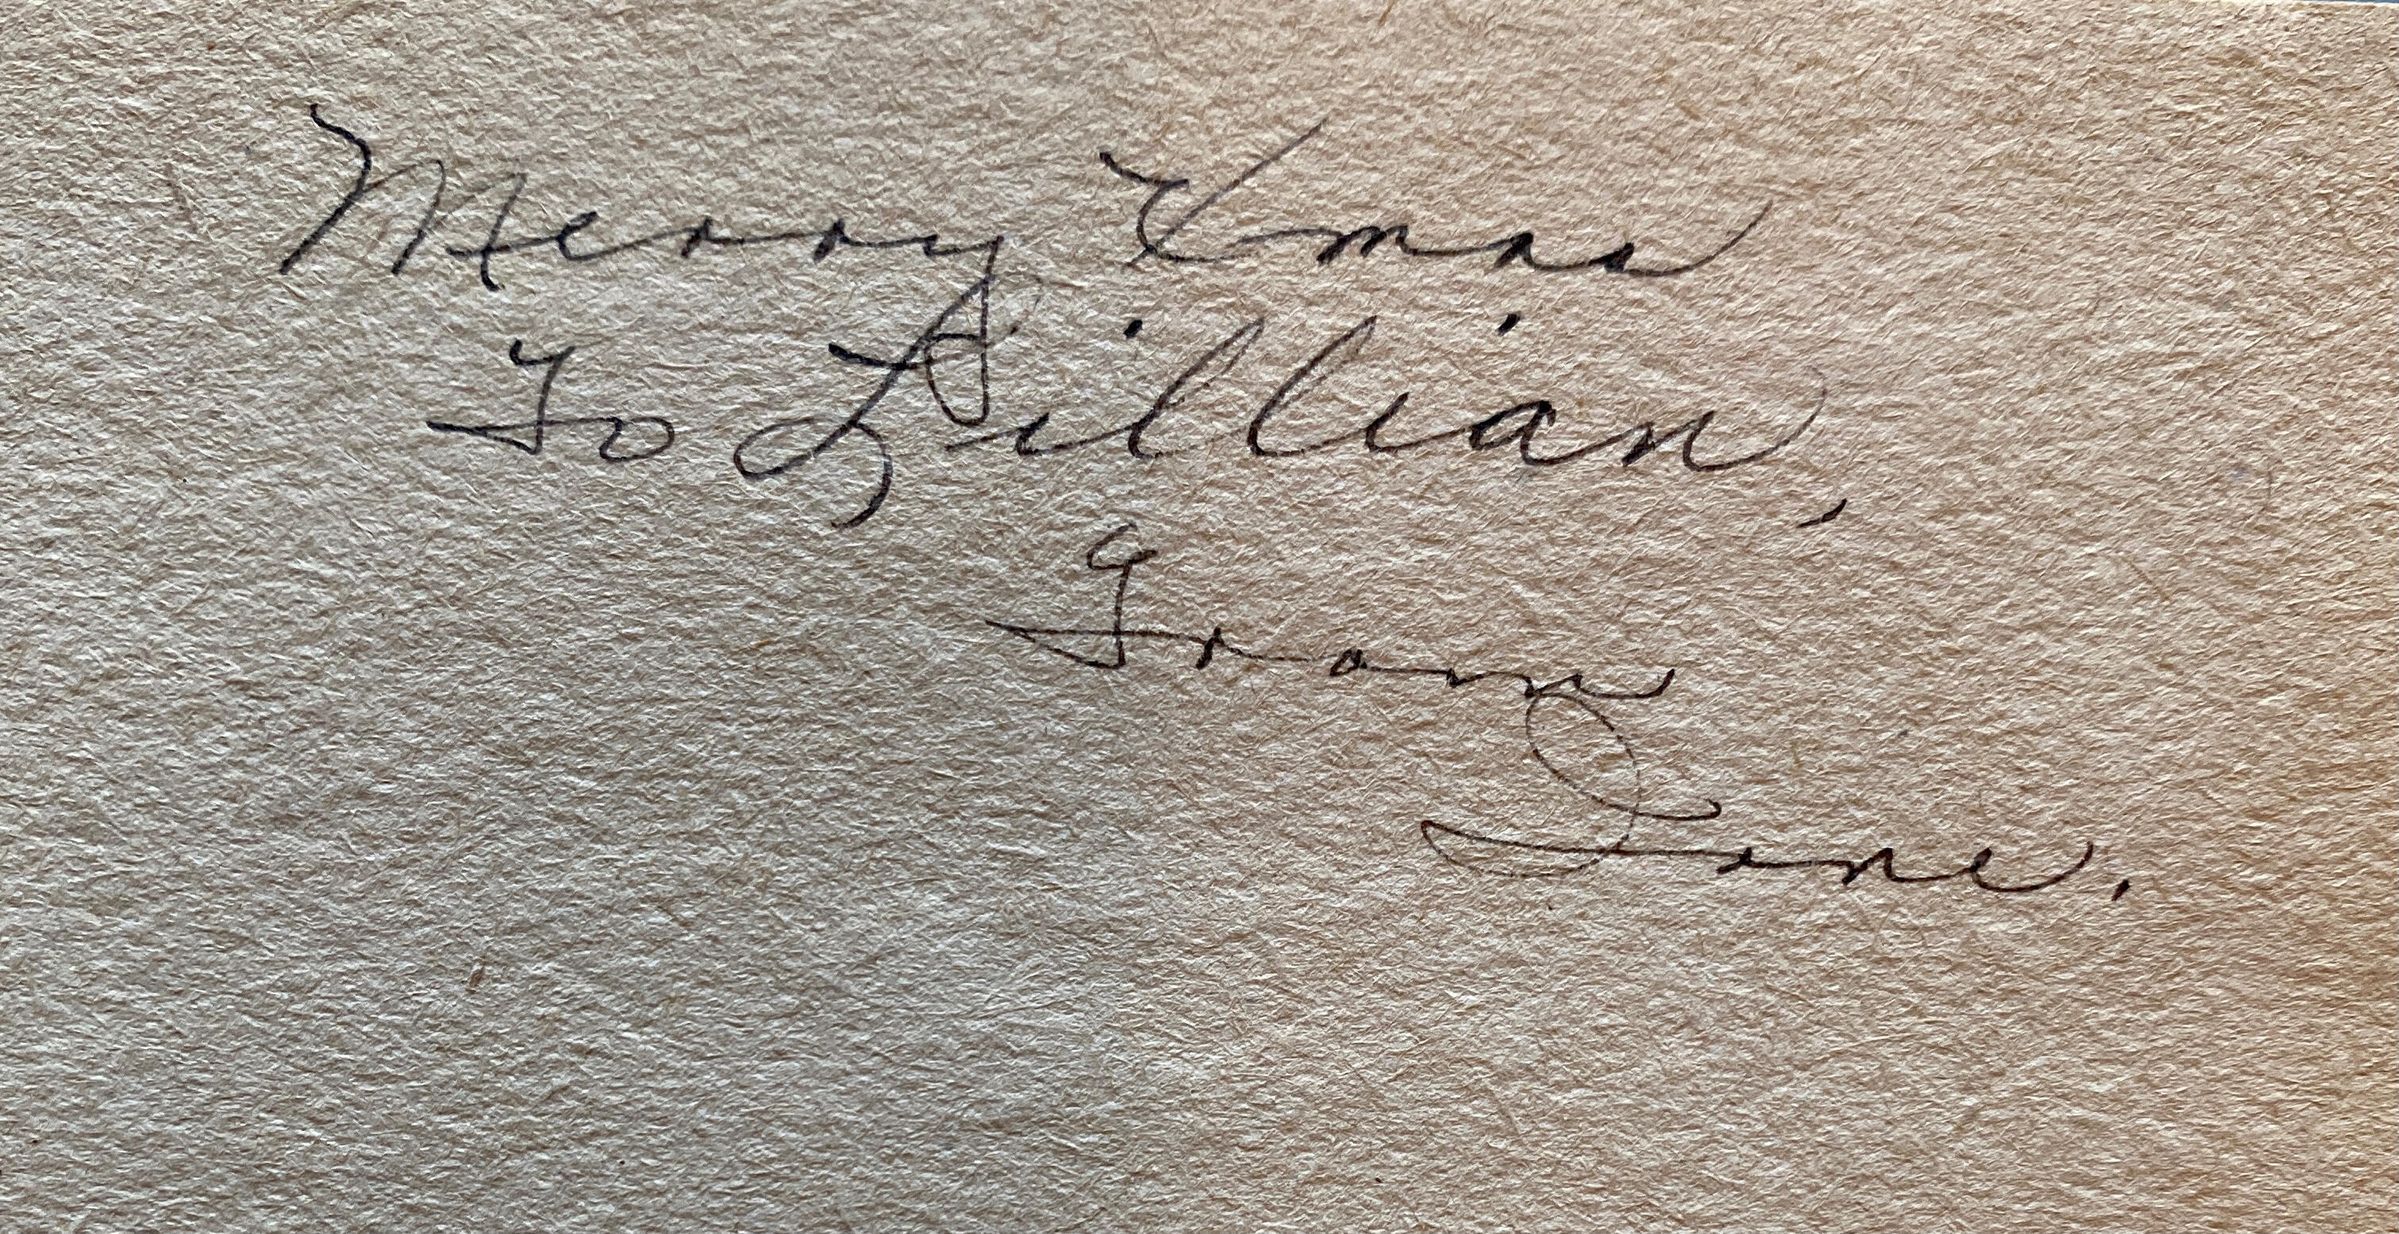 Merry Xmas
To Lillian,
From
Ione.